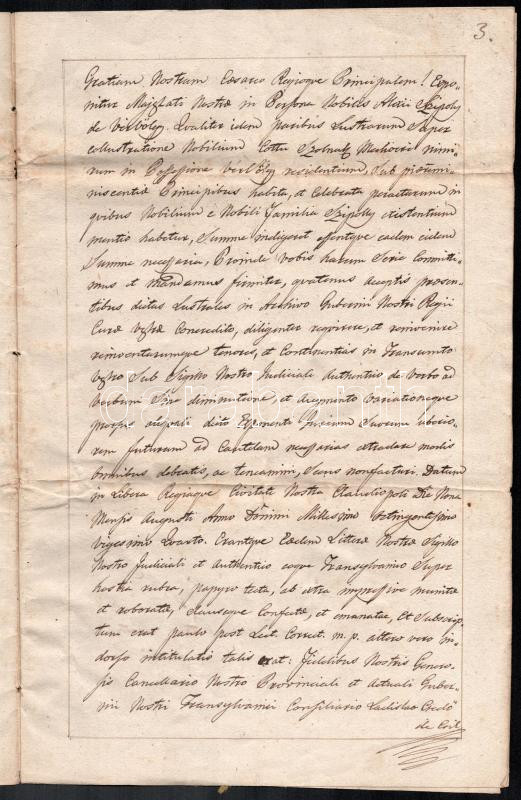 3.
Gratiam Nostram Cæsareo Regioque Principalem! Expo-
nitur Majestati Nostræ in Persona Nobilis Alexii Szipoly
de Vérvölgy. Qualiter idem paribus Lustrarum Super
collustratione Nobilium Cottu Szolnok Mediocri nimi-
rum in Possessione Vérvölgy residentium, sub
Principibus habita, et celebrata peractarum in
quibus Nobilium e Nobili Familia Szipoly existentium
mentio habetur, Summe indigeret essentque eædem eidem
Summe necessariæ, Proinde vobis harum Serie Committi-
mus et Mandamus firmiter, quatenus acceptis præsen-
tibus dictas Lustrales in Archivo Gubernii Nostri Regii
Curæ Vestræ Concredito, diligenter requirere, et reinvenire
reinventarumque tenores, et Continentias in Transumto
Vestro Sub Sigillo Nostro Judiciali Authentico de verbo ad
verbum Sine diminutione, et augmento variationeque
prorsus aliquali dicto Exponenti Jurium Suorum uberio-
rem futuram ad Cautelam necessarias extradare modis
omnibus debeatis, ac teneamini, Secus non facturi. Datum
in Libera Regiaque Civitate Nostra Claudiopoli Die Nona
Mensis Augusti Anno Domini Millesimo Octingentesimo
vigesimo Quarto. Erantque Eædem Litteræ Nostræ Sigillo
Nostro Judiciali et Authentico eoque Transylvanico Super
hostia rubra, papyro tecta, ab extra impressive munitæ
et roboratæ, clauseque Confectæ, et emanatæ, Et Subscrip-
tum erat paulo post Lect. Correct. m. p. altero vero in
dorso intitulatio talis erat: Fidelibus Nostris Genero-
sis Cancellario Nostro Provinciali et Actuali Guber-
nii Nostri Transylvanici Consiliario Ladislao
de
Darabanth